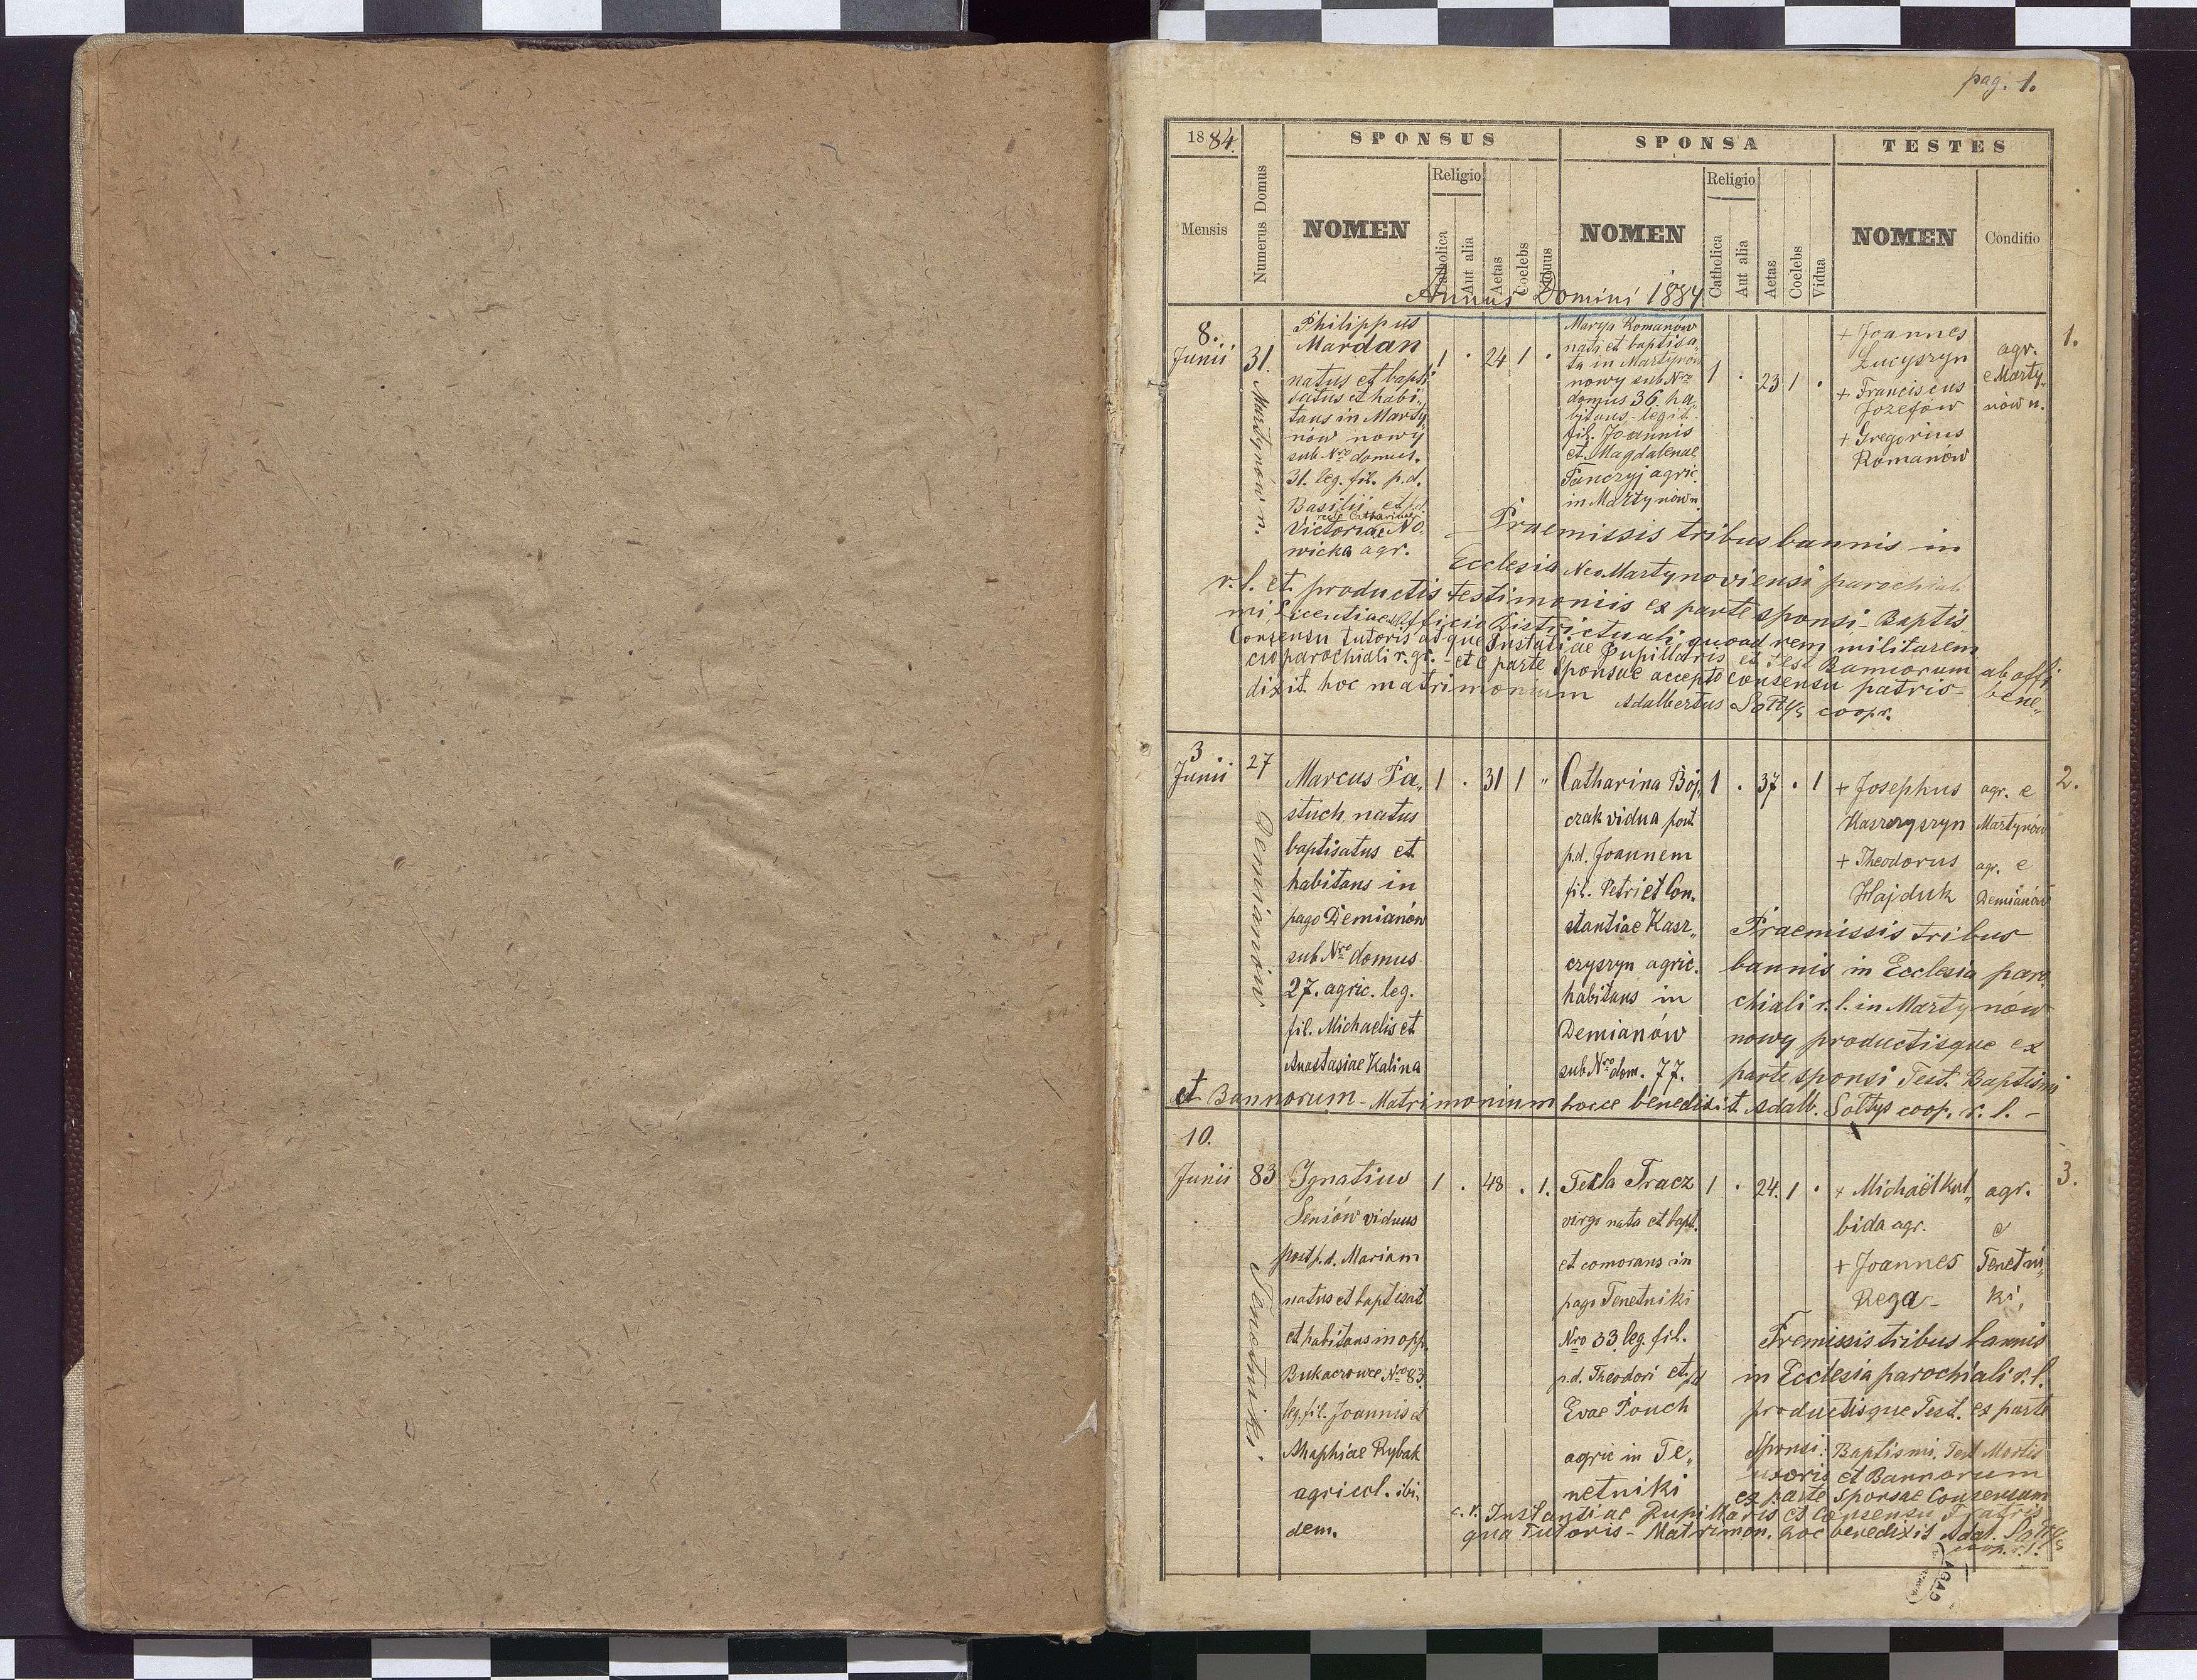 pag. 1.
1884.
SPONSUS
SPONSA
TESTES
Mensis
Numerus Domus
NOMEN
Religio
Catholica
Aut alia
Aetas
Coelebs
Viduus
NOMEN
Religio
Catholica
Aut alia
Aetas
Coelebs
Vidua
NOMEN
Conditio
Annus Domini 1884
8.
Junii
31.
Martynów n.
Philippus
Mardan
natus et bapti
satus et habi„
tans in Marty„
nów nowy
sub Nro domus.
31. leg. fil. p.d.
Basilii et p.d.
recte Catharinae
Victoriae No
wicka agr.
1 . 24 1 .
Marya Romanów
nata et baptisa„
ta in Martynów
nowy sub Nro
domus 36. ha„
bitans - legit.
fil. Joannis
et Magdalenae
Fanczyj agric.
in Martynów n.
1 . 23 1 .
+ Joannes
Łucyszyn
+ Franciscus
Jozefów
+ Gregorius
Romanów
agr.
e Marty„
nów n.
1.
Praemissis tribus bannis in
Ecclesia Neo Martynoviensi parochiali
r. l. et productis testimoniis ex parte sponsi - Baptis
mi, Licentiae ab Officio Districtuali quoad rem militarem
Consensu tutoris atque Instantiae Pupillaris et Test. Bannorum ab offi
cio parochiali r. gr. - et e parte Sponsae accepto consensu patris - bene„
dixit hoc matrimonium
Adalbertus Sołtys coopr.
3
Junii
27
Demianów
Marcus Pa„
stuch, natus
baptisatus et
habitans in
pago Demianów
sub Nro domus
27. agric. leg.
fil. Michaelis et
Anastasiae Kalina
1 . 31 1 „
Catharina Boj„
czak vidua post
p.d. Joannem
fil. Petri et Con„
stantiae Kasz„
czyszyn agric.
habitans in
Demianów
sub Nro dom. 77.
1 . 37 . 1
+ Josephus
Kaszczyszyn
+ Theodorus
Hajduk
agr. e
Martynów
agr. e
Demianów
2.
Praemissis tribus
bannis in Ecclesia paro
chiali r. l. in Martynów
nowy productisque ex
parte sponsi Test. Baptismi
et Bannorum - Matrimonium hocce benedixit Adalb. Sołtys coop. r. l. -
10.
Junii
83
Tenetniki.
Ignatius
Seniów viduus
post p.d. Mariam
natus et baptisat
et habitans in opp.
Bukaczowce Nro 83.
leg. fil. Joannis et
Rybak
agricol. ibi„
dem.
1 . 48 . 1.
Tekla Tracz
virgo nata et bapt.
et comorans in
pago Tenetniki
Nro 33. leg. fil.
p.d. Theodori et p.d
Evae Pouch
agric in Te„
netniki
1 . 24. 1 .
+ Michaël Kul„
bida agr.
+ Joannes
Rega -
agr.
e
Tenetni„
ki,
3.
Premissis tribus bannis
in Ecclesia parochiali r. l.
productisque Test. ex parte
sponsi: Baptismi, Test Mortis
uxoris et Bannorum
ex parte Sponsae Consensum
c. r. Instantiae Pupillaris et Consensu Fratris
qua Tutoris - Matrimon. hoc benedixit Adal. Sołtys
coop. r. l.
AGAD